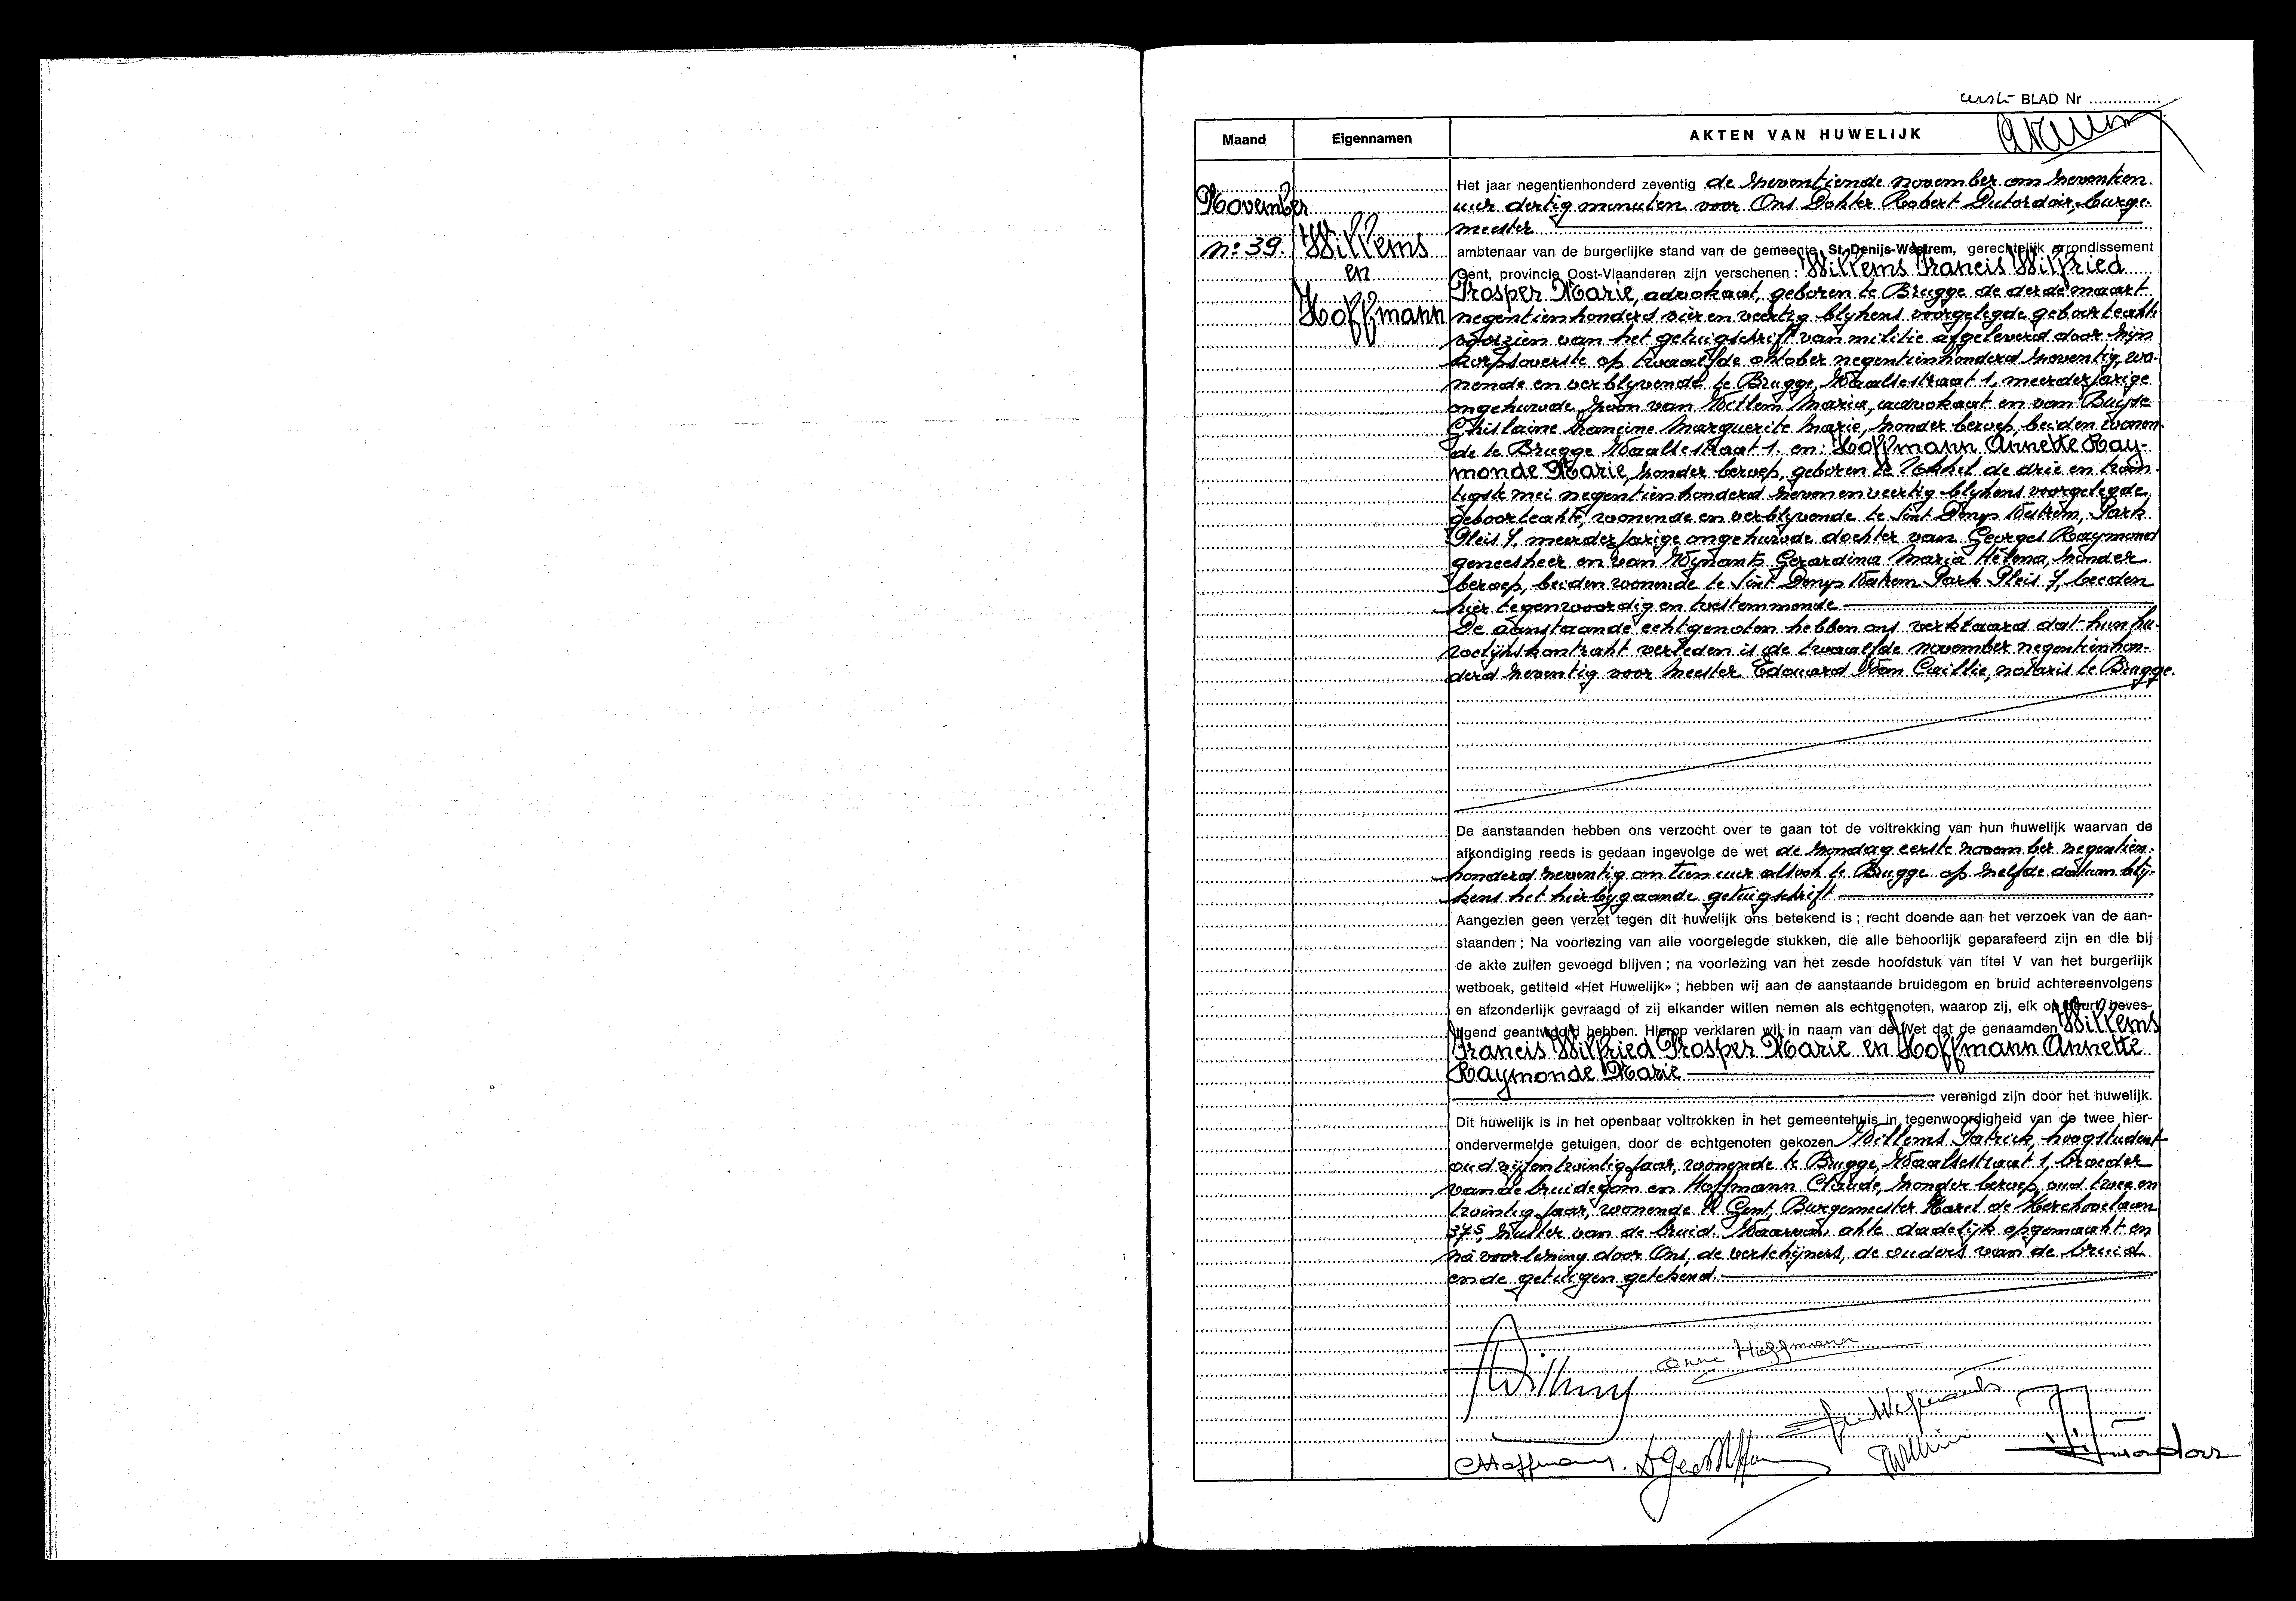 eerste BLAD Nr
Maand
Eigennamen
AKTEN VAN HUWELIJK
November
n° 39.
Willems
en
Hoffmann
Het jaar negentienhonderd zeventig de zeventiende november om zeventien
uur dertig minuten voor Ons Dokter Robert Dutordoir, burge-
meester
ambtenaar van de burgerlijke stand van de gemeente St-Denijs-Westrem, gerechtelijk arrondissement
Gent, provincie Oost-Vlaanderen zijn verschenen : Willems Francis Wilfried
Prosper Marie, advokaat, geboren te Brugge de derde maart
negentienhonderd vier en veertig blijkens voorgelegde geboorteakte
voorzien van het getuigschrift van militie afgeleverd door zijn
korpsoverste op twaalfde oktober negentienhonderd zeventig, wo-
nende en verblijvende te Brugge, Waalsestraat 1, meerderjarige
ongehuwde zoon van Willem Maria, advokaat en van Buyse
Ghislaine Francine Marguerite Marie, zonder beroep, beiden wonen-
de te Brugge Waalsestraat 1. en: Hoffmann Annette Ray-
monde Marie, zonder beroep, geboren te Ukkel de drie en twin-
tigste mei negentienhonderd zeven en veertig blijkens voorgelegde
geboorteakte, wonende en verblijvende te Sint Denys Westrem, Park
Pleis 7, meerderjarige ongehuwde dochter van Georges Raymond
geneesheer en van Wynants Gerardina Maria Helena, zonder
beroep, beiden wonende te Sint Denys Westrem Park Pleis 7, beiden
hier tegenwoordig en toestemmende
De aanstaande echtgenoten hebben ons verklaard dat hun hu-
welijkskontrakt verleden is de twaalfde november negentienhon-
derd zeventig voor Meester Edouard Van Caillie, notaris te Brugge.
De aanstaanden hebben ons verzocht over te gaan tot de voltrekking van hun huwelijk waarvan de
afkondiging reeds is gedaan ingevolge de wet de zondag eerste november negentien-
honderd zeventig om tien uur alsook te Brugge op zelfde datum blij-
kens het hierbijgaande getuigschrift
Aangezien geen verzet tegen dit huwelijk ons betekend is ; recht doende aan het verzoek van de aan-
staanden ; Na voorlezing van alle voorgelegde stukken, die alle behoorlijk geparafeerd zijn en die bij
de akte zullen gevoegd blijven ; na voorlezing van het zesde hoofdstuk van titel V van het burgerlijk
wetboek, getiteld «Het Huwelijk» ; hebben wij aan de aanstaande bruidegom en bruid achtereenvolgens
en afzonderlijk gevraagd of zij elkander willen nemen als echtgenoten, waarop zij, elk op beurt, beves-
tigend geantwoord hebben. Hierop verklaren wij in naam van de Wet dat de genaamden Willems
Francis Wilfried Prosper Marie en Hoffmann Annette
Raymonde Marie
verenigd zijn door het huwelijk.
Dit huwelijk is in het openbaar voltrokken in het gemeentehuis in tegenwoordigheid van de twee hier-
ondervermelde getuigen, door de echtgenoten gekozen Willems Patrick, hoogstudent
oud vijfentwintig jaar, wonende te Brugge, Waalsestraat 1, broeder
van de bruidegom en Hoffmann Claude, zonder beroep, oud twee en
twintig jaar, wonende te Gent, Burgemeester Karel de Kerchovelaan
375, zuster van de bruid. Waarvan akte dadelijk opgemaakt en
na voorlezing door Ons, de verschijners, de ouders van de bruid
en de getuigen getekend.
Anne Hoffmann
CHoffmann.